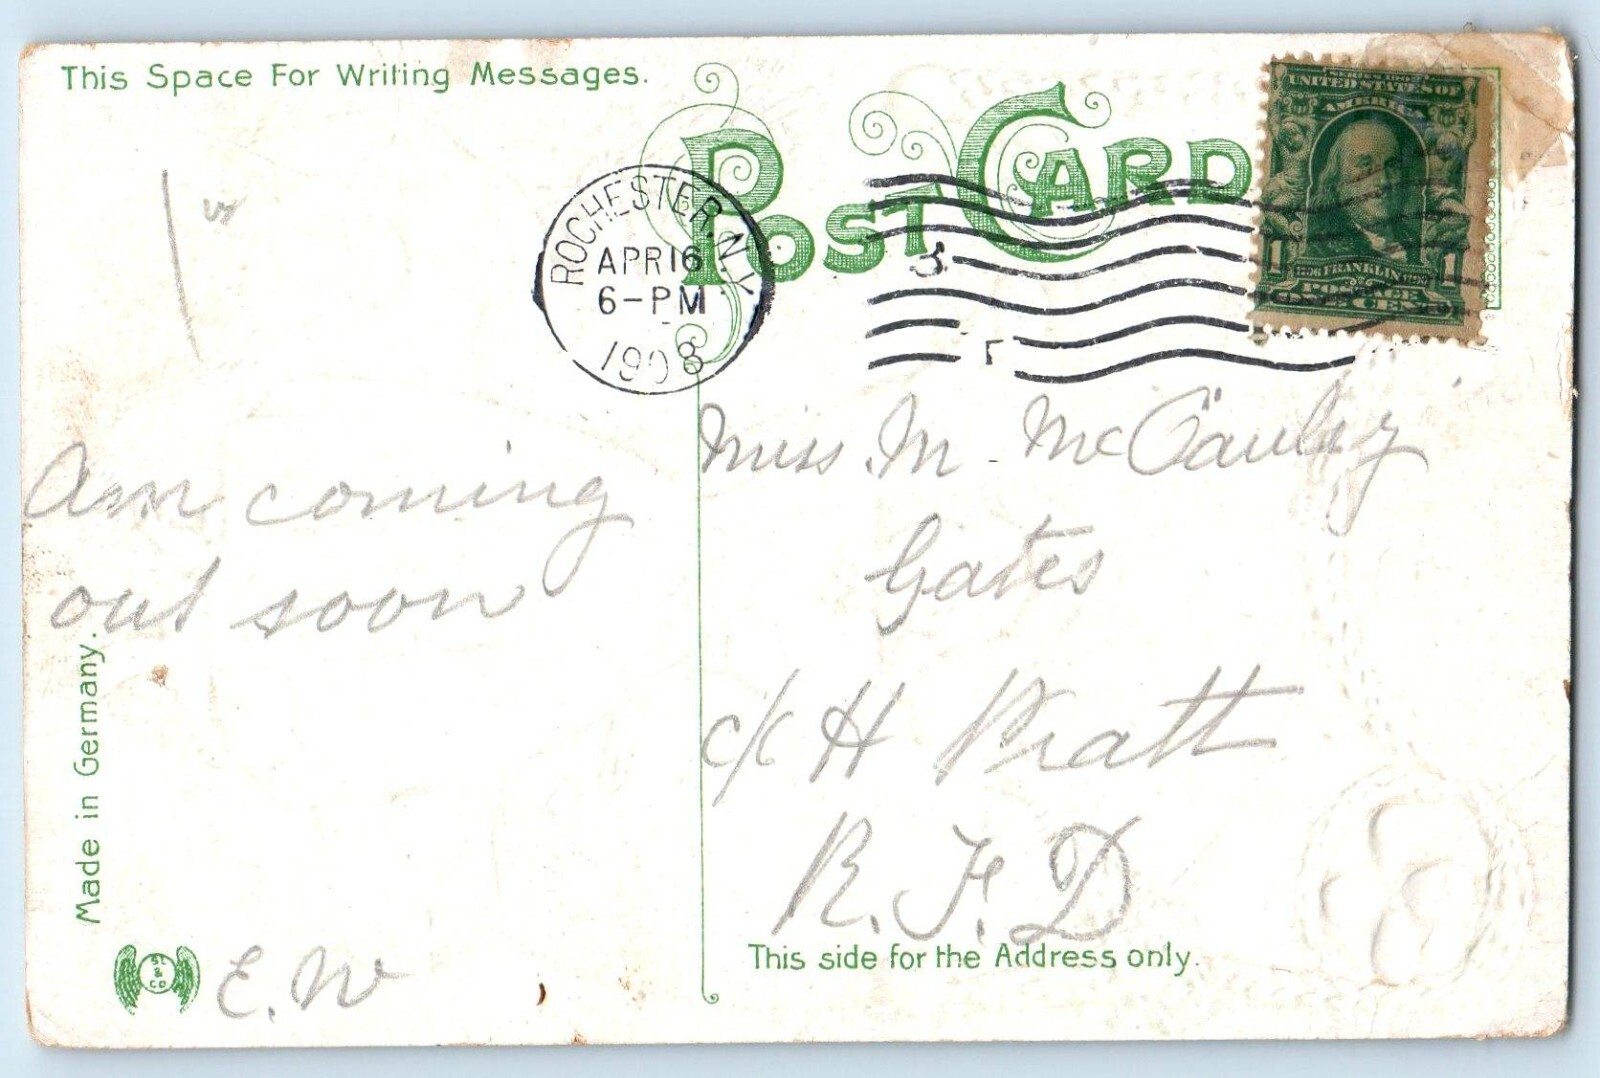 This Space For Writing Messages.
POST CARD
ROCHESTER, N.Y.
APR 16
6-PM
1908
SERIES 1902
UNITED STATES OF
AMERICA
1706 FRANKLIN 1790
1 1
POSTAGE
ONE CENT
Am coming
out soon
E. W
Miss. M. McCauley
Gates
c/c H Pratt
R. F. D
Made in Germany.
SL
&
CO
This side for the Address only.